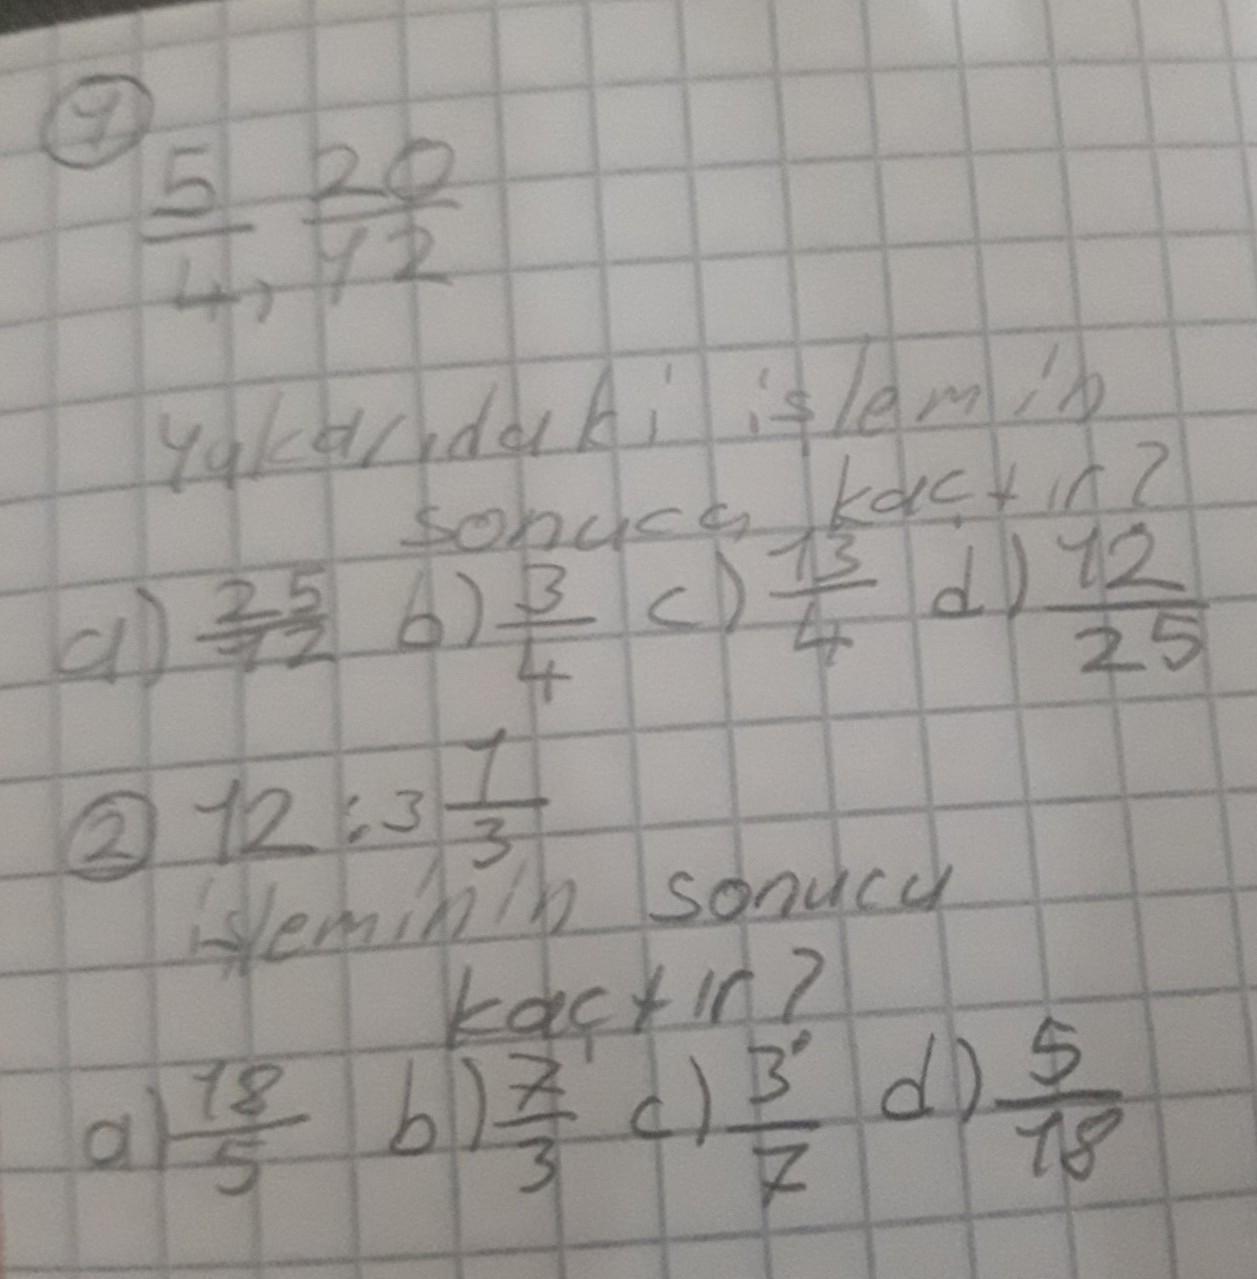 1
5/4, 20/12
yukarıdaki işlemin
sonucu kaçtır?
a) 25/12 b) 3/4 c) 13/4 d) 12/25
2 12 : 3 1/3
işleminin sonucu
kaçtır?
a) 18/5 b) 7/3 c) 3/7 d) 5/18